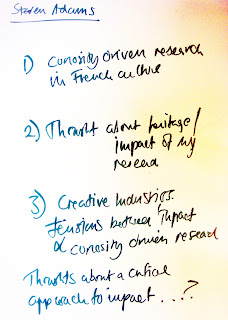 Steven Adams
1) Curiosity driven research
in French culture
2) Thought about heritage /
impact of my
research
3) Creative Industries.
Tensions between Impact
& curiosity driven research
Thoughts about a critical
approach to impact...?